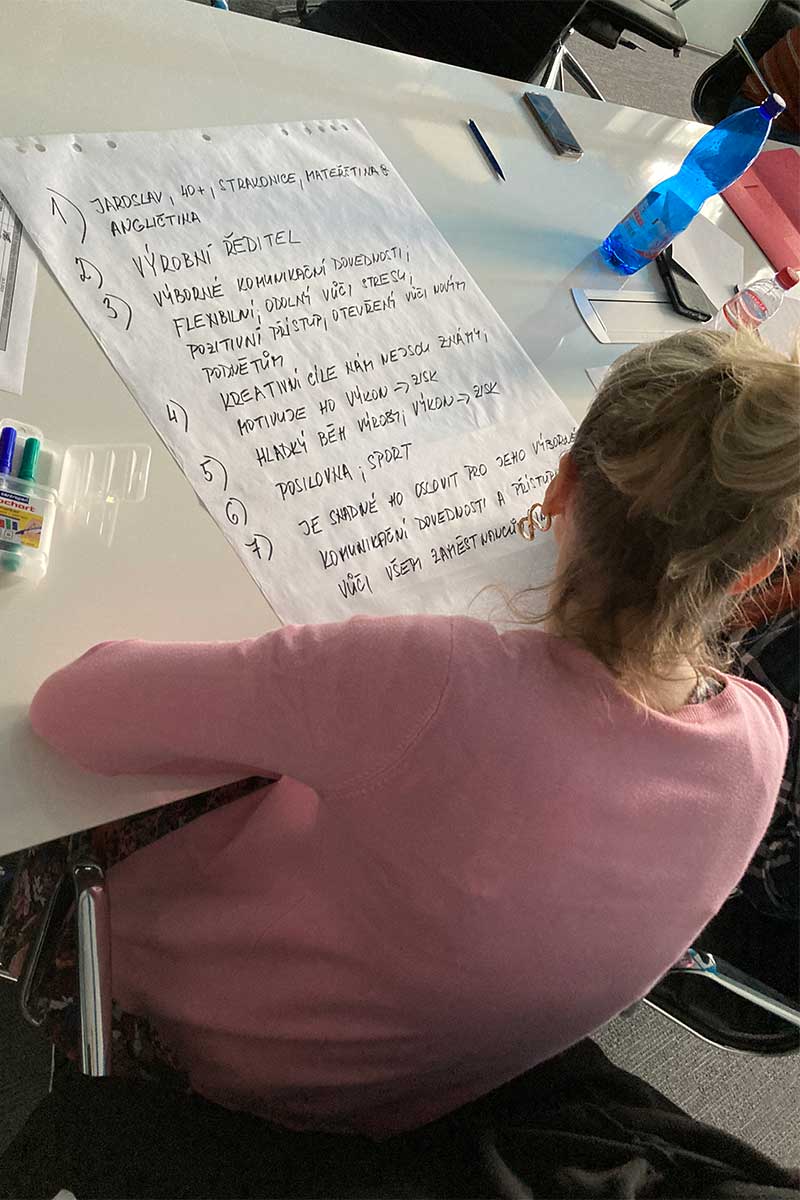 1) JAROSLAV, 40+, STRAKONICE, MATEŘŠTINA &
ANGLIČTINA
2) VÝROBNÍ ŘEDITEL
3) VÝBORNÉ KOMUNIKAČNÍ DOVEDNOSTI,
FLEXIBILNÍ, ODOLNÝ VŮČI STRESU,
POZITIVNÍ PŘÍSTUP, OTEVŘENÝ VŮČI NOVÝM
PODNĚTŮM
4) KREATIVNÍ CÍLE NÁM NEJSOU ZNÁMY,
MOTIVUJE HO VÝKON → ZISK
5) HLADKÝ BĚH VÝROBY, VÝKON → ZISK
6) POSILOVNA, SPORT
7) JE SNADNÉ HO OSLOVIT PRO JEHO VÝBORNÉ
KOMUNIKAČNÍ DOVEDNOSTI A PŘÍSTUP
VŮČI VŠEM ZAMĚSTNANCŮM